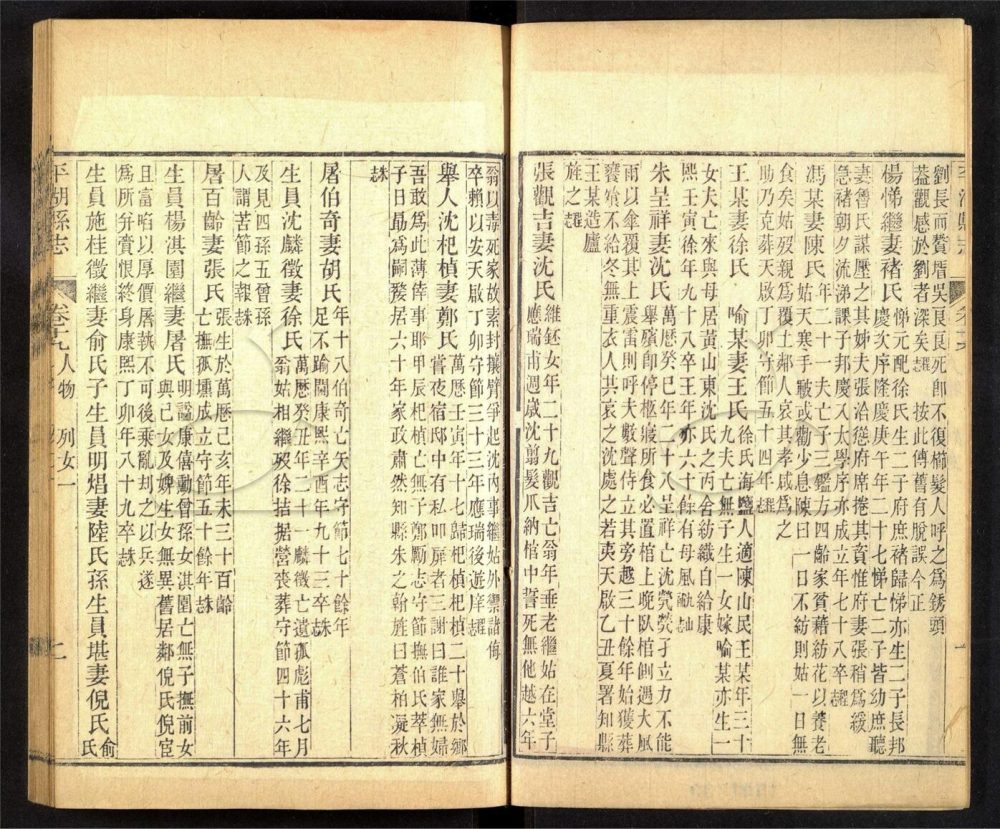 劉長而贅厝吳艮艮死卽不復櫛髮人呼之爲銹頭
葢觀感於劉者深矣 按此傳舊有脫誤今正
楊悌繼妻褚氏
悌元配徐氏生二子府庶褚歸悌亦生二子長邦
慶次序隆慶庚午年二十七悌亡二子皆幼庶聽
妻魯氏謀壓之其姊夫張洽慫府席捲其貲惟府妻張稍爲緩
急褚朝夕流涕課子邦慶入太學序亦成立年七十八卒
馮某妻陳氏
年二十一夫亡子三鑑方四齡家貧藉紡花以養老
姑天寒手皸或勸少息陳曰一日不紡則姑一日無
食矣姑歿親爲覆土鄰人哀其孝感爲之
助乃克葬天啟丁卯守節五十四年
王某妻徐氏 喻某妻王氏
徐氏海鹽人適陳山民王某年三十
九夫亡無子生一女嫁喻某亦生一
女夫亡來與母居黃山東沈氏之丙舍紡織自給康
熙壬寅徐年九十八卒王年亦六十餘有母風
朱呈祥妻沈氏
萬曆癸巳年二十八呈祥亡沈煢煢孑立力不能
舉殯卽停柩寢所食必置棺上晚臥棺側遇大風
雨以傘覆其上震雷則呼夫數聲侍立其旁越三十餘年始獲葬
饔飧不給冬無重衣人共哀之沈處之若夷天啟乙丑夏署知縣
王某造廬
旌之
張觀吉妻沈氏
維鈺女年二十九觀吉亡翁年垂老繼姑在堂子
應瑞甫週歲沈翦髮爪納棺中誓死無他越六年
翁以毒死家故素封攘臂爭起沈內事繼姑外禦諸侮
卒賴以安天啟丁卯守節三十三年應瑞後遊庠
舉人沈杞楨妻鄭氏
萬曆壬寅年十七歸杞楨杞楨二十舉於鄉
嘗夜宿邸中有私叩扉者三謝曰誰家無婦
吾敢爲此薄倖事耶甲辰杞楨亡無子鄭勵志守節撫伯氏萃楨
子日勗爲嗣嫠居六十年家政肅然知縣朱之翰旌曰蒼柏凝秋
屠伯奇妻胡氏
年十八伯奇亡矢志守節七十餘年
足不踰閾康熙辛酉年九十三卒
生員沈麟徵妻徐氏
萬曆癸丑年二十一麟徵亡遺孤彪甫七月
翁姑相繼歿徐拮据營喪葬守節四十六年
及見四孫五曾孫
人謂苦節之報
屠百齡妻張氏
張生於萬曆己亥年未三十百齡
亡撫孤壎成立守節五十餘年
生員楊淇園繼妻屠氏
明諡康僖勳曾孫女淇園亡無子撫前女
與己女及婢生女無異舊居鄰倪氏倪宦
且富啗以厚價屠執不可後乘亂刦之以兵遂
爲所幷賫恨終身康熙丁卯年八十九卒
生員施桂徵繼妻俞氏子生員明焻妻陸氏孫生員堪妻倪氏
俞
氏
平湖縣志
卷十九 人物 列女一